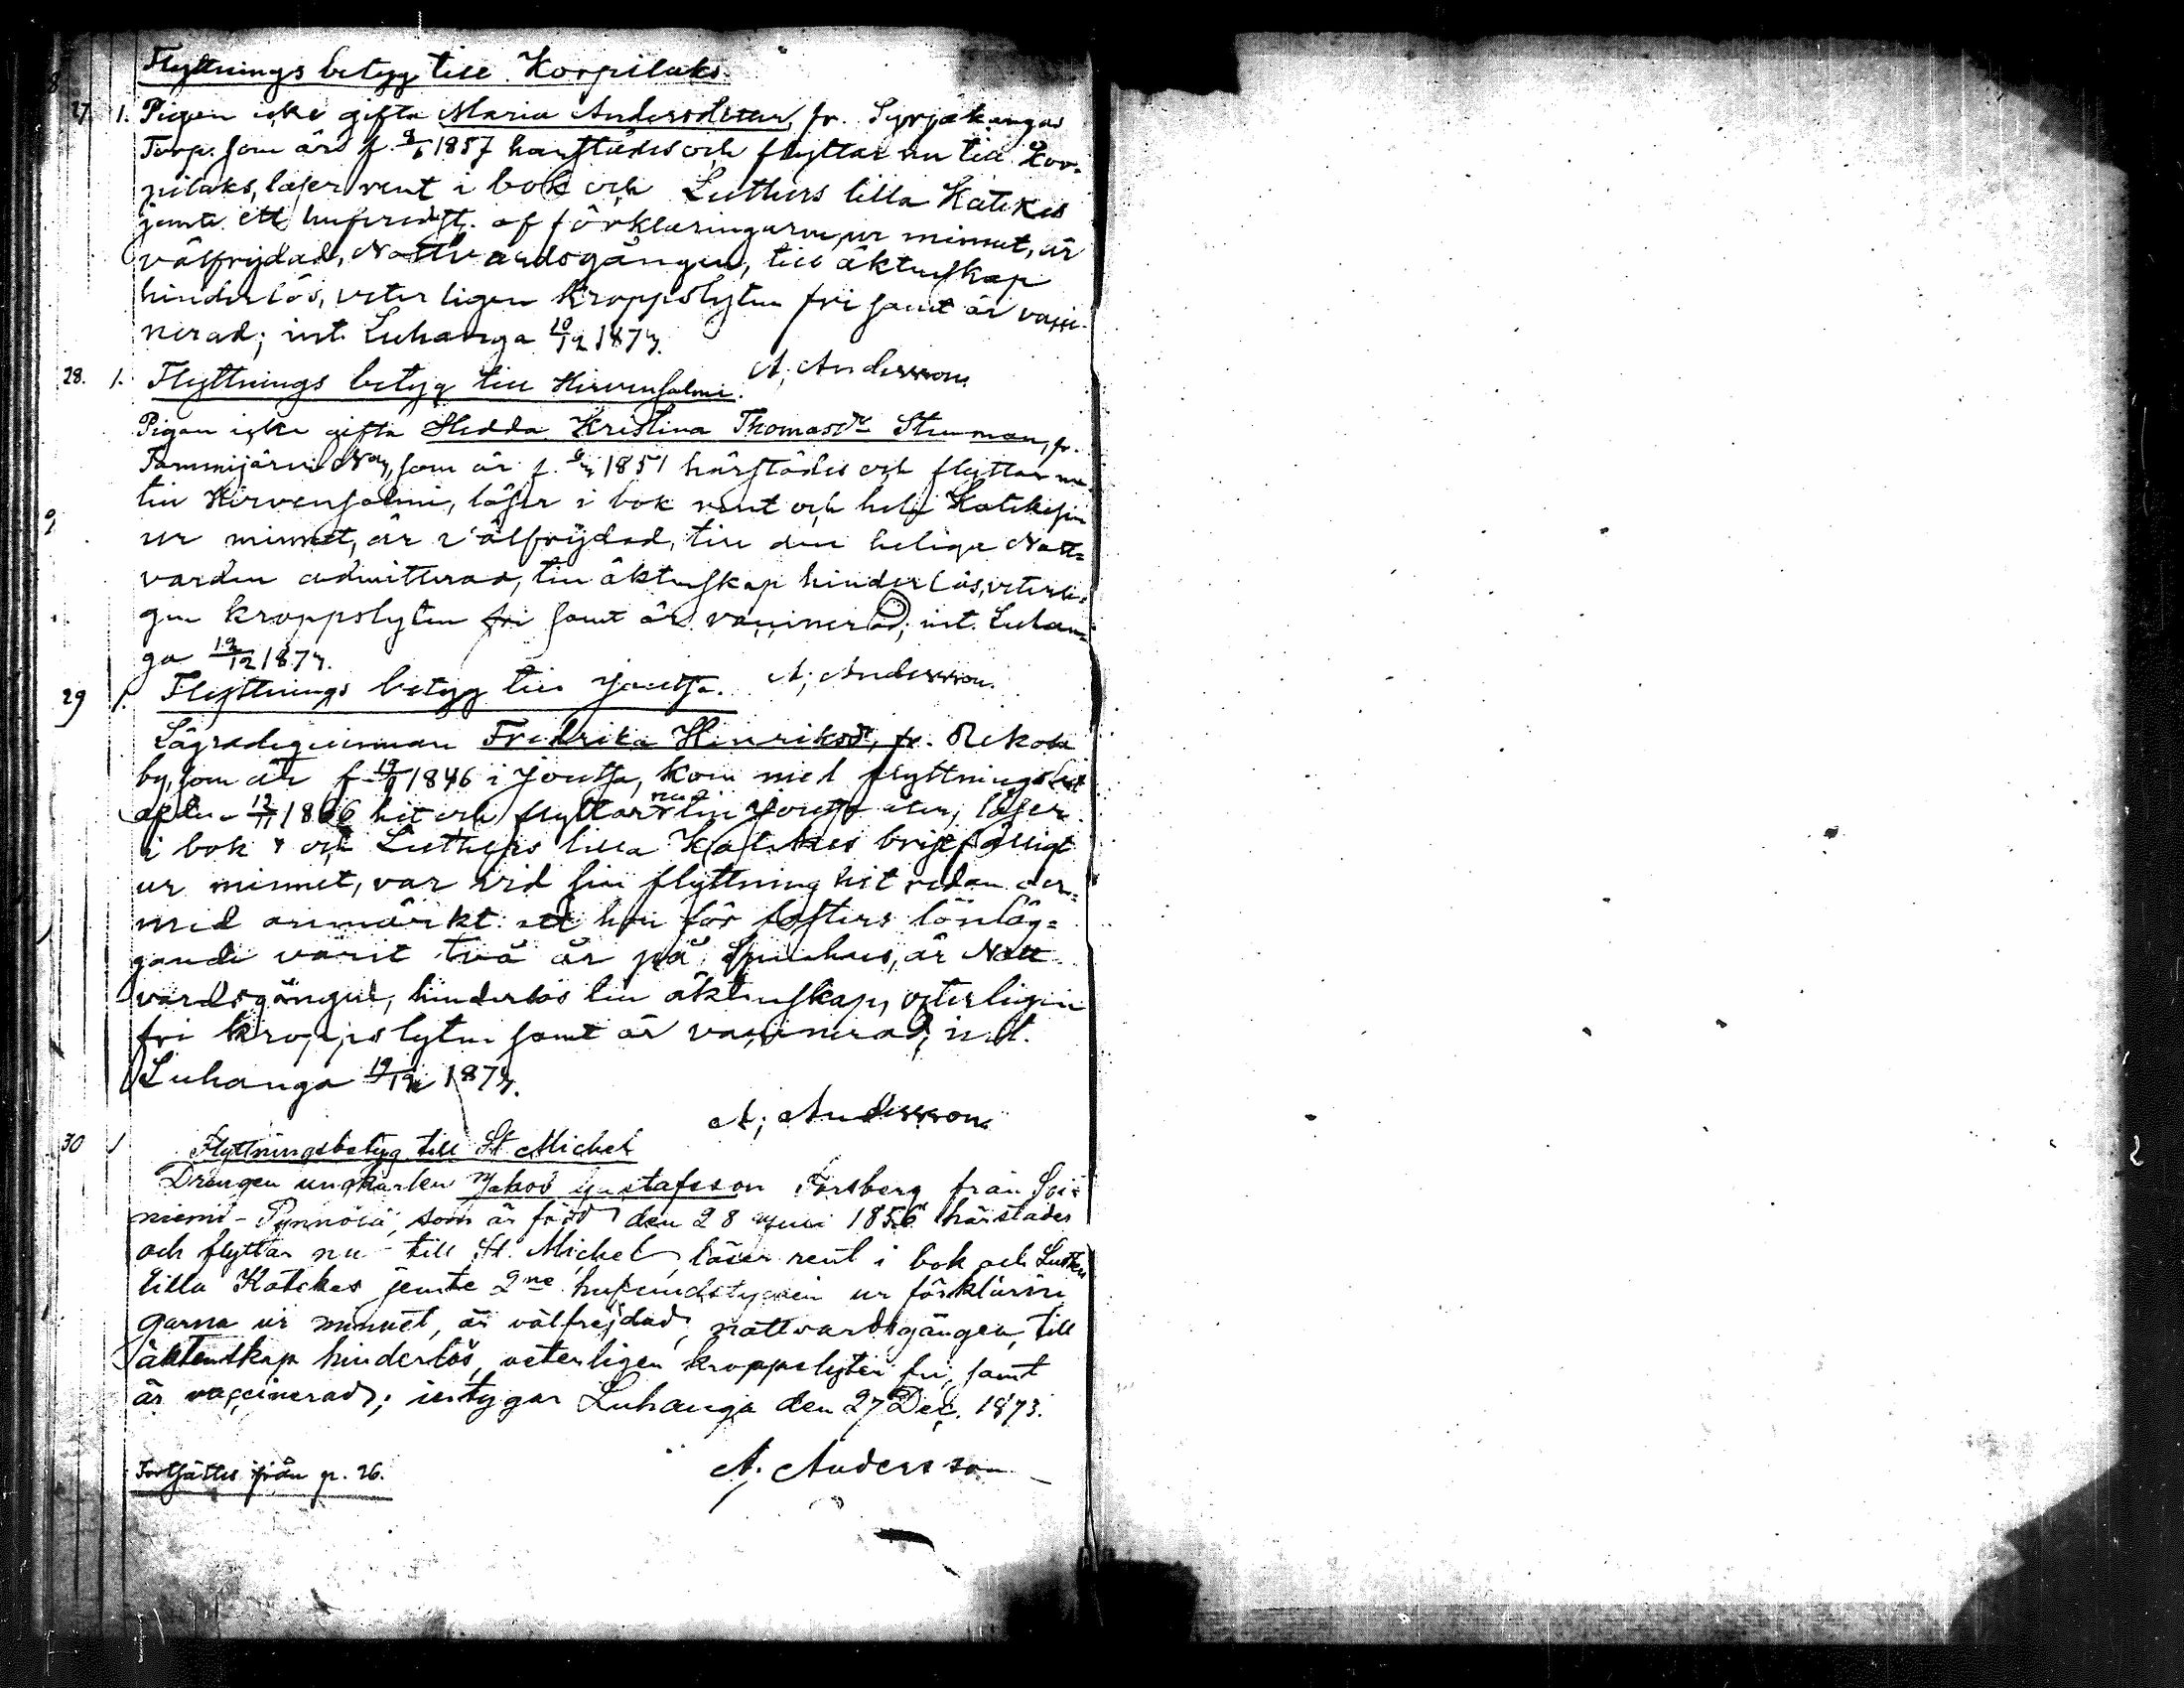 Flyttnings betyg till Korpilaks.
27. 1. Pigan icke gifta Maria Andersdotter, fr. Syrjäkangas
Torp. som är f. 1857 härstädes och flyttar nu till Kor-
pilaks, läser rent i bok och Luthers lilla Katekes
jemte ett hufvudst. af förklaringarne ur minnet, är
välfrejdad, Nattvardsgången, till äktenskap
hinderlös, veterligen kroppslyten fri samt är vacci-
nerad; int. Luhanga 10/12 1873.
A. Andersson.
28. 1. Flyttnings betyg till Hirvensalmi.
Pigan icke gifta Hedda Kristina Thomasdr Stenman, fr.
Tammijärvi som är f. 1851 härstädes och flyttar nu
till Hirvensalmi, läser i bok rent och hela Katekesen
ur minnet, är välfrejdad, till den heliga Natt=
varden admitterad, till äktenskap hinderlös, veterli-
gen kroppslyten fri samt är vaccinerad; int. Luhan=
ga 19/12 1873.
A. Andersson.
29 1. Flyttnings betyg till Joutsa.
Lägradqvinnan Fredrika Hinriksdr, fr.
by, som är f. 1846 i Joutsa, kom med flyttnings
af den 1866 hit och flyttar nu till Joutsa åter, läser
i bok och Luthers lilla Katekes bristfälligt
ur minnet, var vid sin flyttning hit redan der-
med anmärkt att hon för fosters lönläg=
gande varit två år på Spinhus, är Natt
vardsgången, hinderlös till äktenskap, veterligen
fri kroppslyten samt är vaccinerad; int.
Luhanga 19/12 1873.
A. Andersson
30 1 Flyttningsbetyg till St Michel
Drängen ungkarlen Jakob Gustafsson Forsberg från
niemi-Pynnölä, som är född den 28 Juni 1856 härstädes
och flyttar nu till St. Michel, läser rent i bok och Luthers
lilla Katekes jemte 2ne hufvudstycken ur förklarin
garna ur minnet, är välfrejdad, nattvardsgången, till
äktenskap hinderlös, veterligen kroppslyten fri, samt
är vaccinerad; intygar Luhanga den 27 Dec. 1873.
A. Andersson
Fortsättes från p. 26.